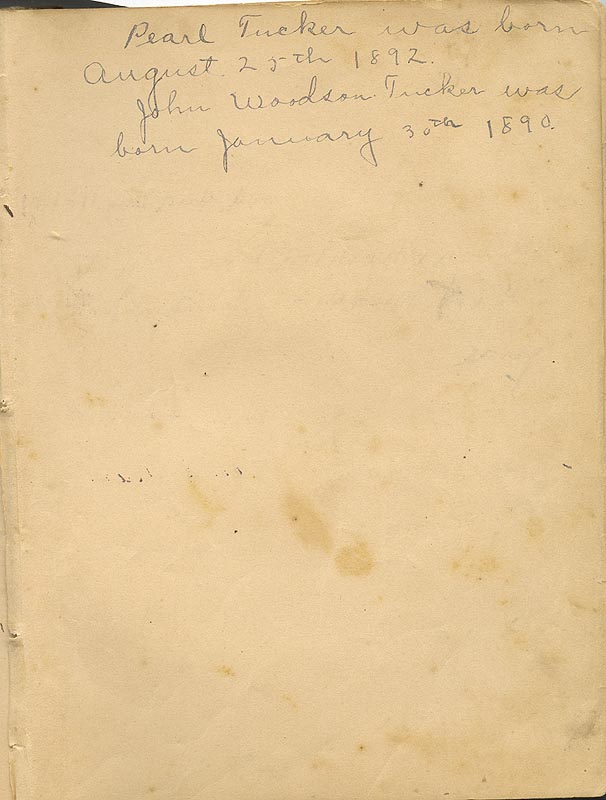 Pearl Tucker was born
August. 25th 1892.
John Woodson Tucker was
born January 30th 1890.